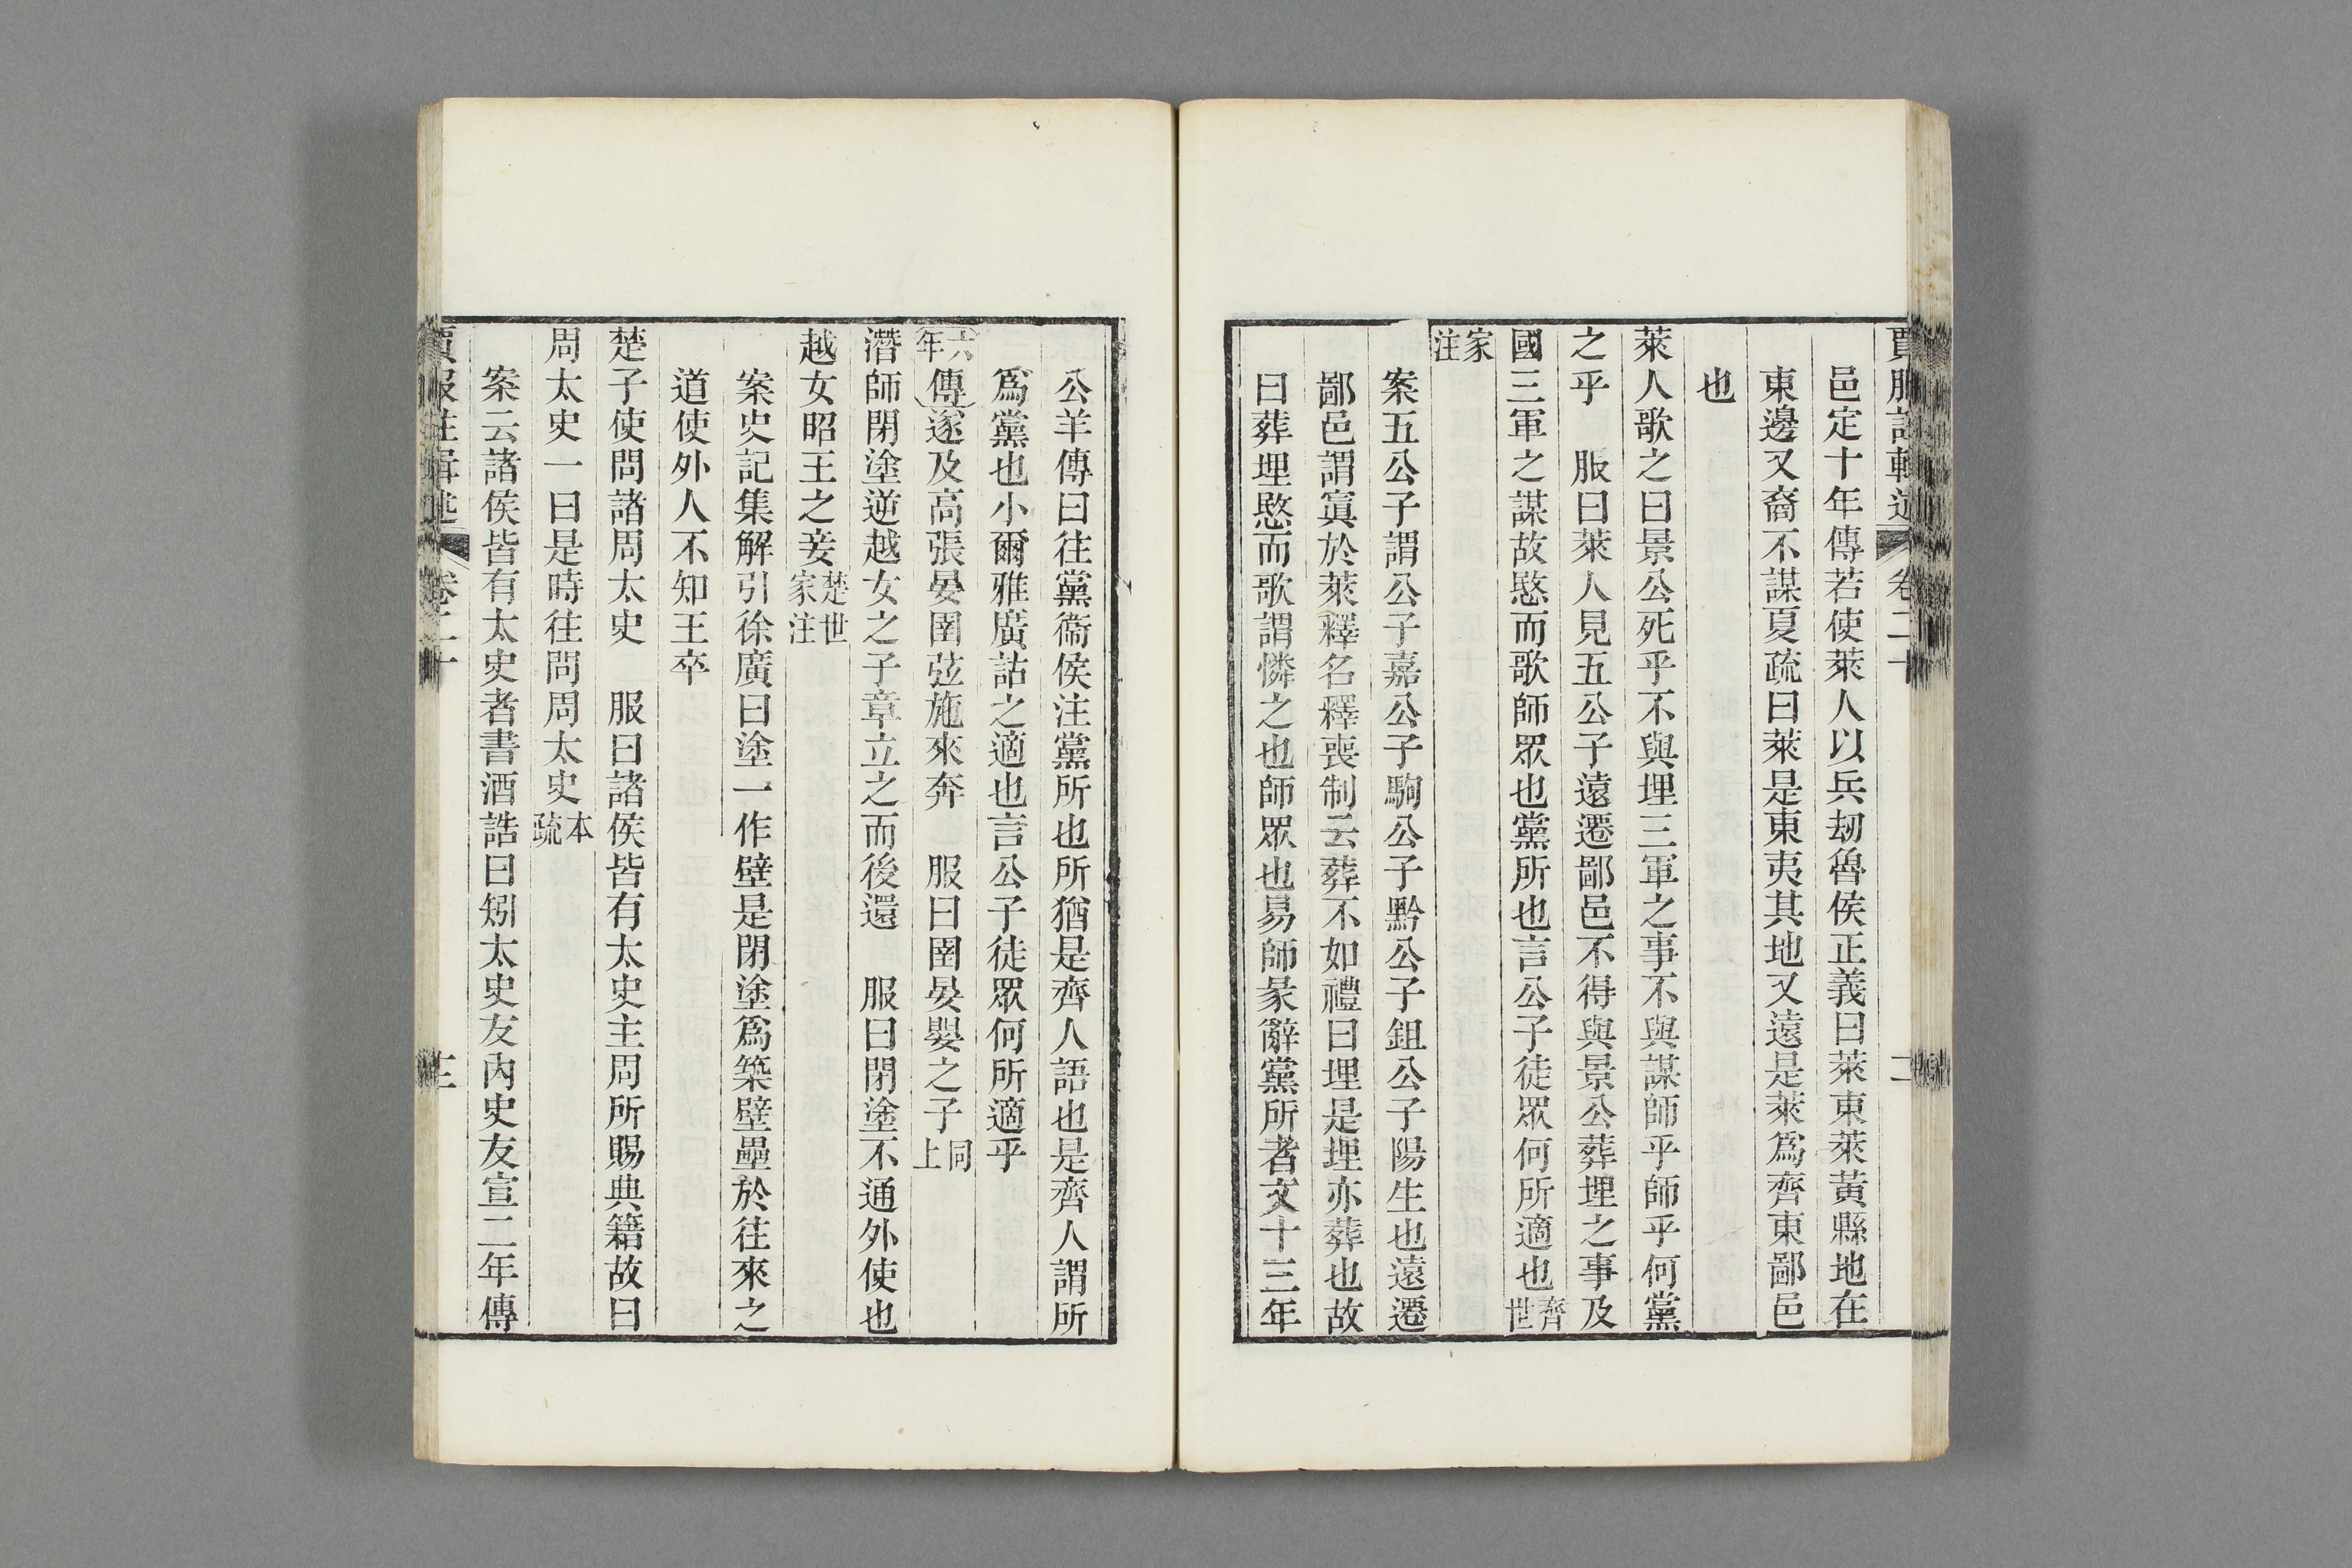 賈服注輯述 卷二十 二
邑定十年傳若使萊人以兵劫魯侯正義曰萊東萊黃縣地在
東邊又裔不謀夏疏曰萊是東夷其地又遠是萊爲齊東鄙邑
也
萊人歌之曰景公死乎不與埋三軍之事不與謀師乎師乎何黨
之乎 服曰萊人見五公子遠遷鄙邑不得與景公葬埋之事及
國三軍之謀故愍而歌師眾也黨所也言公子徒眾何所適也齊世
家注
案五公子謂公子嘉公子駒公子黔公子鉏公子陽生也遠遷
鄙邑謂寘於萊釋名釋喪制云葬不如禮曰埋是埋亦葬也故
曰葬埋愍而歌謂憐之也師眾也易師彖辭黨所者文十三年
公羊傳曰往黨衞侯注黨所也所猶是齊人語也是齊人謂所
爲黨也小爾雅廣詁之適也言公子徒眾何所適乎
六年傳遂及高張晏圉弦施來奔 服曰圉晏嬰之子同上
潛師閉塗逆越女之子章立之而後還 服曰閉塗不通外使也
越女昭王之妾楚世家注
案史記集解引徐廣曰塗一作壁是閉塗爲築壁壘於往來之
道使外人不知王卒
楚子使問諸周太史 服曰諸侯皆有太史主周所賜典籍故曰
周太史一曰是時往問周太史本疏
案云諸侯皆有太史者書酒誥曰矧太史友內史友宣二年傳
賈服注輯述 卷二十 三